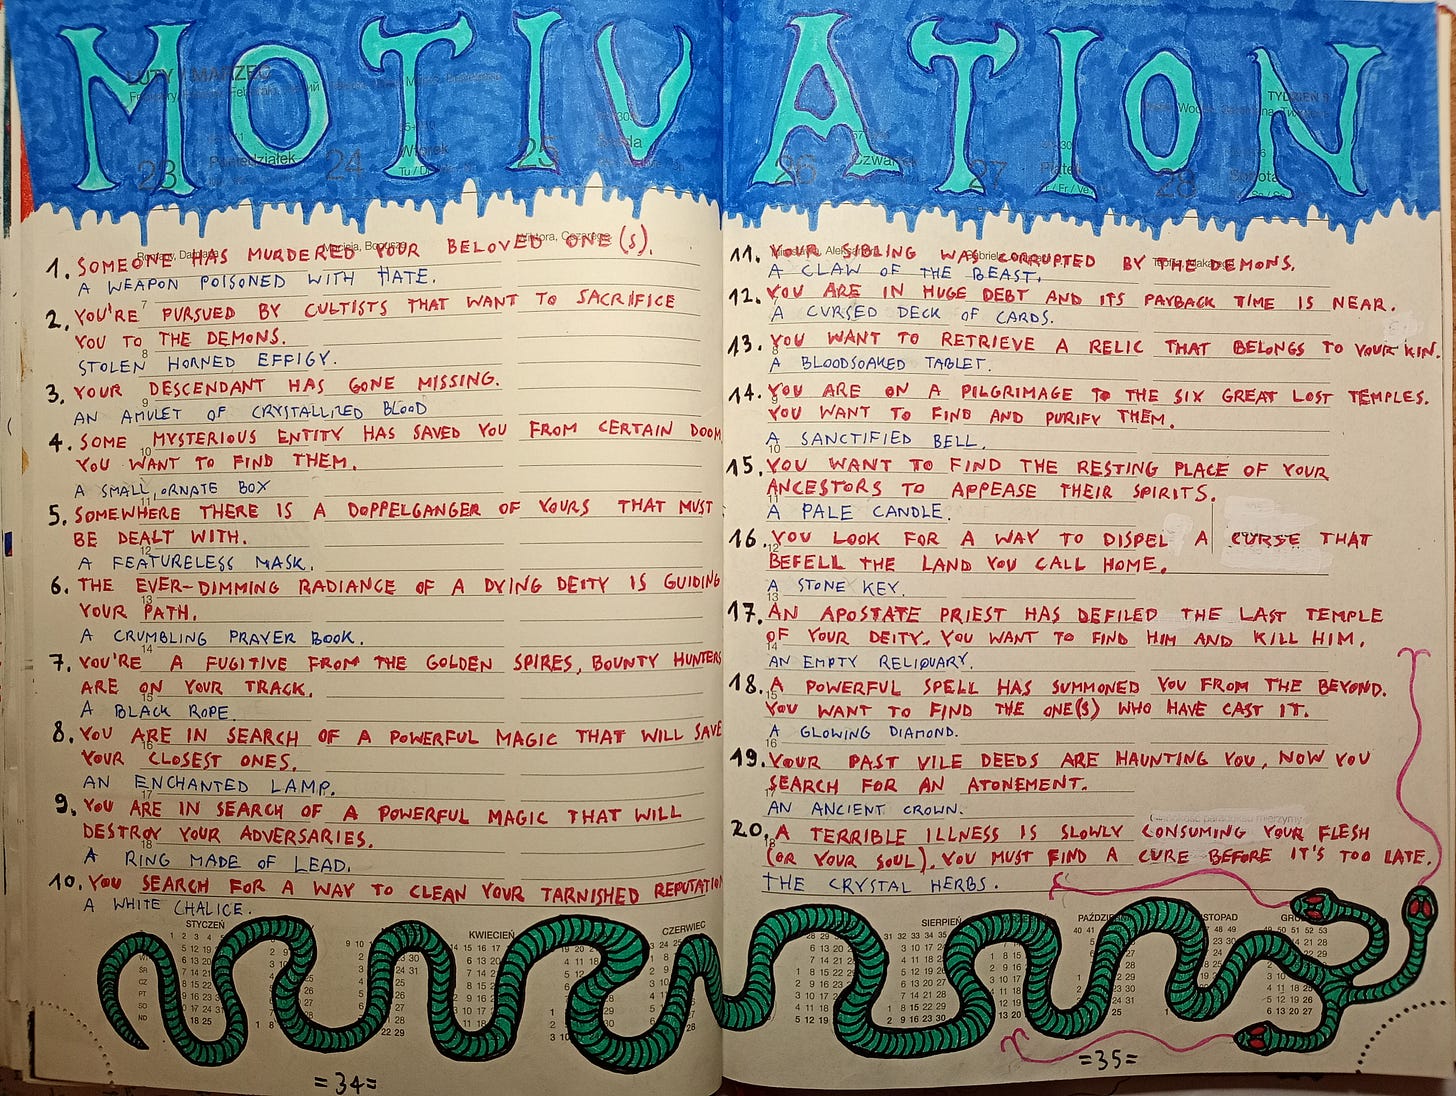 MOTIVATION
1. SOMEONE HAS MURDERED YOUR BELOVED ONE(S).
A WEAPON POISONED WITH HATE.
2. YOU'RE PURSUED BY CULTISTS THAT WANT TO SACRIFICE
YOU TO THE DEMONS.
STOLEN HORNED EFFIGY.
3. YOUR DESCENDANT HAS GONE MISSING.
AN AMULET OF CRYSTALLIZED BLOOD
4. SOME MYSTERIOUS ENTITY HAS SAVED YOU FROM CERTAIN DOOM
YOU WANT TO FIND THEM.
A SMALL, ORNATE BOX
5. SOMEWHERE THERE IS A DOPPELGANGER OF YOURS THAT MUST
BE DEALT WITH.
A FEATURELESS MASK.
6. THE EVER-DIMMING RADIANCE OF A DYING DEITY IS GUIDING
YOUR PATH.
A CRUMBLING PRAYER BOOK.
7. YOU'RE A FUGITIVE FROM THE GOLDEN SPIRES, BOUNTY HUNTERS
ARE ON YOUR TRACK.
A BLACK ROPE.
8. YOU ARE IN SEARCH OF A POWERFUL MAGIC THAT WILL SAVE
YOUR CLOSEST ONES.
AN ENCHANTED LAMP.
9. YOU ARE IN SEARCH OF A POWERFUL MAGIC THAT WILL
DESTROY YOUR ADVERSARIES.
A RING MADE OF LEAD.
10. YOU SEARCH FOR A WAY TO CLEAN YOUR TARNISHED REPUTATION
A WHITE CHALICE.
STYCZEŃ
KWIECIEŃ
CZERWIEC
=34=
11. YOUR SIBLING WAS CORRUPTED BY THE DEMONS.
A CLAW OF THE BEAST.
12. YOU ARE IN HUGE DEBT AND ITS PAYBACK TIME IS NEAR.
A CURSED DECK OF CARDS.
13. YOU WANT TO RETRIEVE A RELIC THAT BELONGS TO YOUR KIN.
A BLOODSOAKED TABLET.
14. YOU ARE ON A PILGRIMAGE TO THE SIX GREAT LOST TEMPLES.
YOU WANT TO FIND AND PURIFY THEM.
A SANCTIFIED BELL.
15. YOU WANT TO FIND THE RESTING PLACE OF YOUR
ANCESTORS TO APPEASE THEIR SPIRITS.
A PALE CANDLE.
16. YOU LOOK FOR A WAY TO DISPEL A CURSE THAT
BEFELL THE LAND YOU CALL HOME.
A STONE KEY.
17. AN APOSTATE PRIEST HAS DEFILED THE LAST TEMPLE
OF YOUR DEITY. YOU WANT TO FIND HIM AND KILL HIM.
AN EMPTY RELIQUARY.
18. A POWERFUL SPELL HAS SUMMONED YOU FROM THE BEYOND.
YOU WANT TO FIND THE ONE(S) WHO HAVE CAST IT.
A GLOWING DIAMOND.
19. YOUR PAST VILE DEEDS ARE HAUNTING YOU, NOW YOU
SEARCH FOR AN ATONEMENT.
AN ANCIENT CROWN.
20. A TERRIBLE ILLNESS IS SLOWLY CONSUMING YOUR FLESH
(OR YOUR SOUL). YOU MUST FIND A CURE BEFORE IT'S TOO LATE.
THE CRYSTAL HERBS.
SIERPIEŃ
=35=